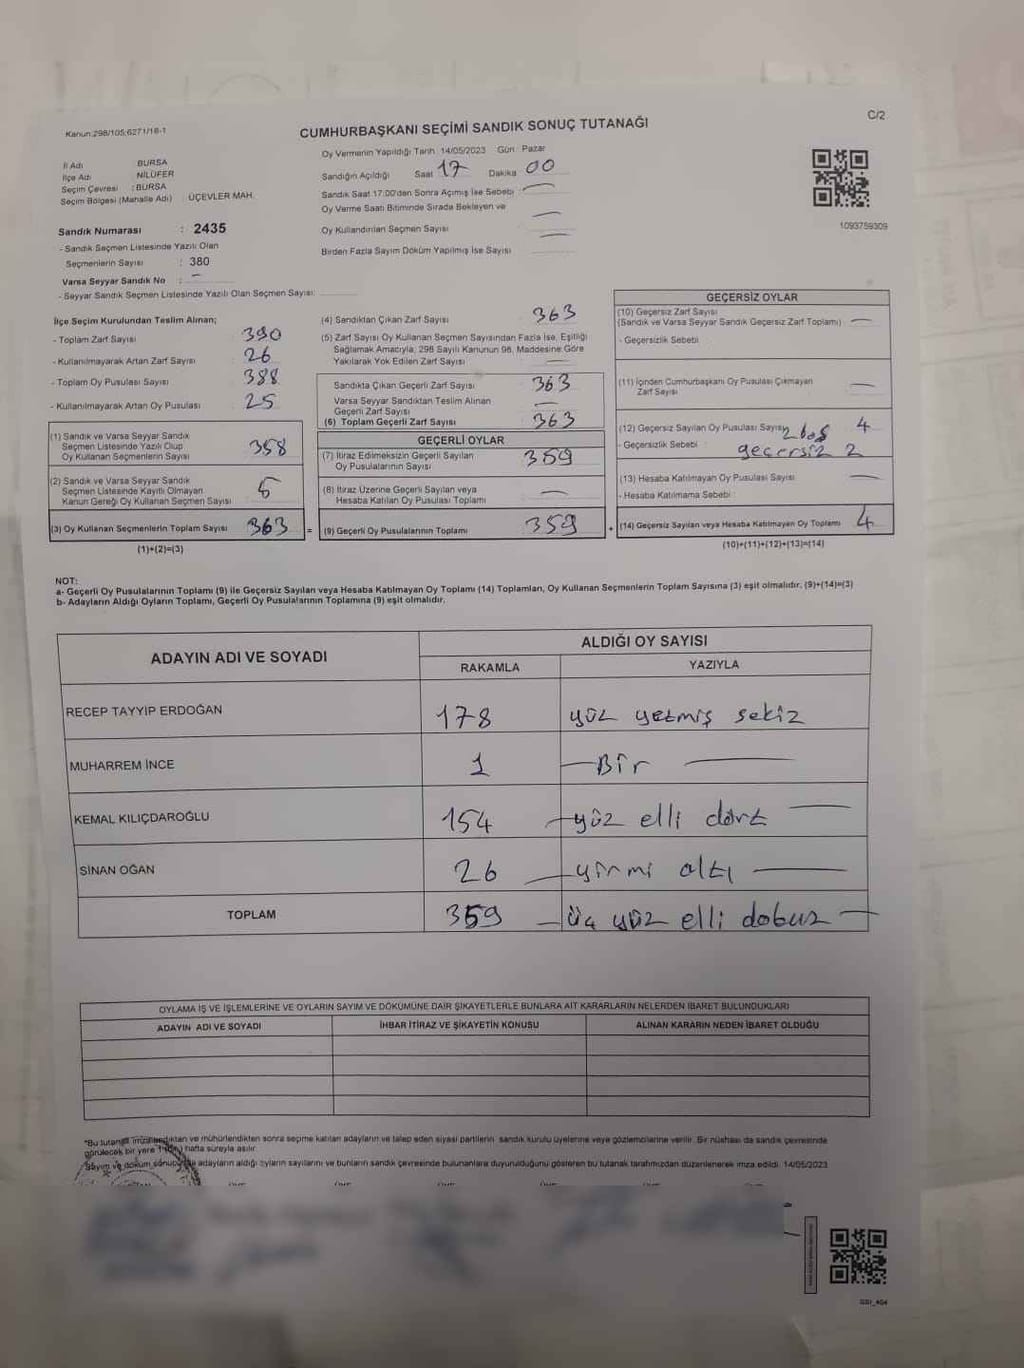 Kanun:298/105;6271/18-1
C/2
CUMHURBAŞKANI SEÇİMİ SANDIK SONUÇ TUTANAĞI
İl Adı BURSA
İlçe Adı NİLÜFER
Seçim Çevresi : BURSA
Seçim Bölgesi (Mahalle Adı) ÜÇEVLER MAH.
Sandık Numarası : 2435
- Sandık Seçmen Listesinde Yazılı Olan
Seçmenlerin Sayısı : 380
Varsa Seyyar Sandık No : —
- Seyyar Sandık Seçmen Listesinde Yazılı Olan Seçmen Sayısı:
Oy Vermenin Yapıldığı Tarih : 14/05/2023 Gün : Pazar
Sandığın Açıldığı Saat 17 Dakika 00
Sandık Saat 17:00'den Sonra Açımış İse Sebebi : —
Oy Verme Saati Bitiminde Sırada Bekleyen ve
Oy Kullandırılan Seçmen Sayısı —
Birden Fazla Sayım Döküm Yapılmış İse Sayısı —
1093759309
İlçe Seçim Kurulundan Teslim Alınan;
- Toplam Zarf Sayısı 390
- Kullanılmayarak Artan Zarf Sayısı 26
- Toplam Oy Pusulası Sayısı 388
- Kullanılmayarak Artan Oy Pusulası 25
(1) Sandık ve Varsa Seyyar Sandık
Seçmen Listesinde Yazılı Olup
Oy Kullanan Seçmenlerin Sayısı 358
(2) Sandık ve Varsa Seyyar Sandık
Seçmen Listesinde Kayıtlı Olmayan
Kanun Gereği Oy Kullanan Seçmen Sayısı 5
(3) Oy Kullanan Seçmenlerin Toplam Sayısı 363 =
(1)+(2)=(3)
(4) Sandıktan Çıkan Zarf Sayısı 363
(5) Zarf Sayısı Oy Kullanan Seçmen Sayısından Fazla İse, Eşitliği
Sağlamak Amacıyla, 298 Sayılı Kanunun 98. Maddesine Göre
Yakılarak Yok Edilen Zarf Sayısı —
Sandıkta Çıkan Geçerli Zarf Sayısı 363
Varsa Seyyar Sandıktan Teslim Alınan
Geçerli Zarf Sayısı —
(6) Toplam Geçerli Zarf Sayısı 363
GEÇERLİ OYLAR
(7) İtiraz Edimeksizin Geçerli Sayılan
Oy Pusulalarının Sayısı 359
(8) İtiraz Üzerine Geçerli Sayılan veya
Hesaba Katılan Oy Pusulası Toplamı —
(9) Geçerli Oy Pusulalarının Toplamı 359 +
GEÇERSİZ OYLAR
(10) Geçersiz Zarf Sayısı
(Sandık ve Varsa Seyyar Sandık Geçersiz Zarf Toplamı) —
- Geçersizlik Sebebi
(11) İçinden Cumhurbaşkanı Oy Pusulası Çıkmayan
Zarf Sayısı —
(12) Geçersiz Sayılan Oy Pusulası Sayısı 2 boş 4
- Geçersizlik Sebebi geçersiz 2
(13) Hesaba Katılmayan Oy Pusulası Sayısı —
- Hesaba Katılmama Sebebi
(14) Geçersiz Sayılan veya Hesaba Katılmayan Oy Toplamı 4
(10)+(11)+(12)+(13)=(14)
NOT:
a- Geçerli Oy Pusulalarının Toplamı (9) ile Geçersiz Sayılan veya Hesaba Katılmayan Oy Toplamı (14) Toplamları, Oy Kullanan Seçmenlerin Toplam Sayısına (3) eşit olmalıdır. (9)+(14)=(3)
b- Adayların Aldığı Oyların Toplamı, Geçerli Oy Pusulalarının Toplamına (9) eşit olmalıdır.
ADAYIN ADI VE SOYADI
ALDIĞI OY SAYISI
RAKAMLA YAZIYLA
RECEP TAYYİP ERDOĞAN 178 yüz yetmiş sekiz
MUHARREM İNCE 1 — Bir —
KEMAL KILIÇDAROĞLU 154 — yüz elli dört —
SİNAN OĞAN 26 — yirmi altı —
TOPLAM 359 — üç yüz elli dokuz —
OYLAMA İŞ VE İŞLEMLERİNE VE OYLARIN SAYIM VE DÖKÜMÜNE DAİR ŞİKAYETLERLE BUNLARA AİT KARARLARIN NELERDEN İBARET BULUNDUKLARI
ADAYIN ADI VE SOYADI İHBAR İTİRAZ VE ŞİKAYETİN KONUSU ALINAN KARARIN NEDEN İBARET OLDUĞU
*Bu tutanak imzalandıktan ve mühürlendikten sonra seçime katılan adayların ve talep eden siyasi partilerin sandık kurulu üyelerine veya gözlemcilerine verilir. Bir nüshası da sandık çevresinde
görülecek bir yere 1 (bir) hafta süreyle asılır.
adayların aldığı oyların sayılarını ve bunların sandık çevresinde bulunanlara duyurulduğunu gösteren bu tutanak tarafımızdan düzenlenerek imza edildi. 14/05/2023
GSI_404